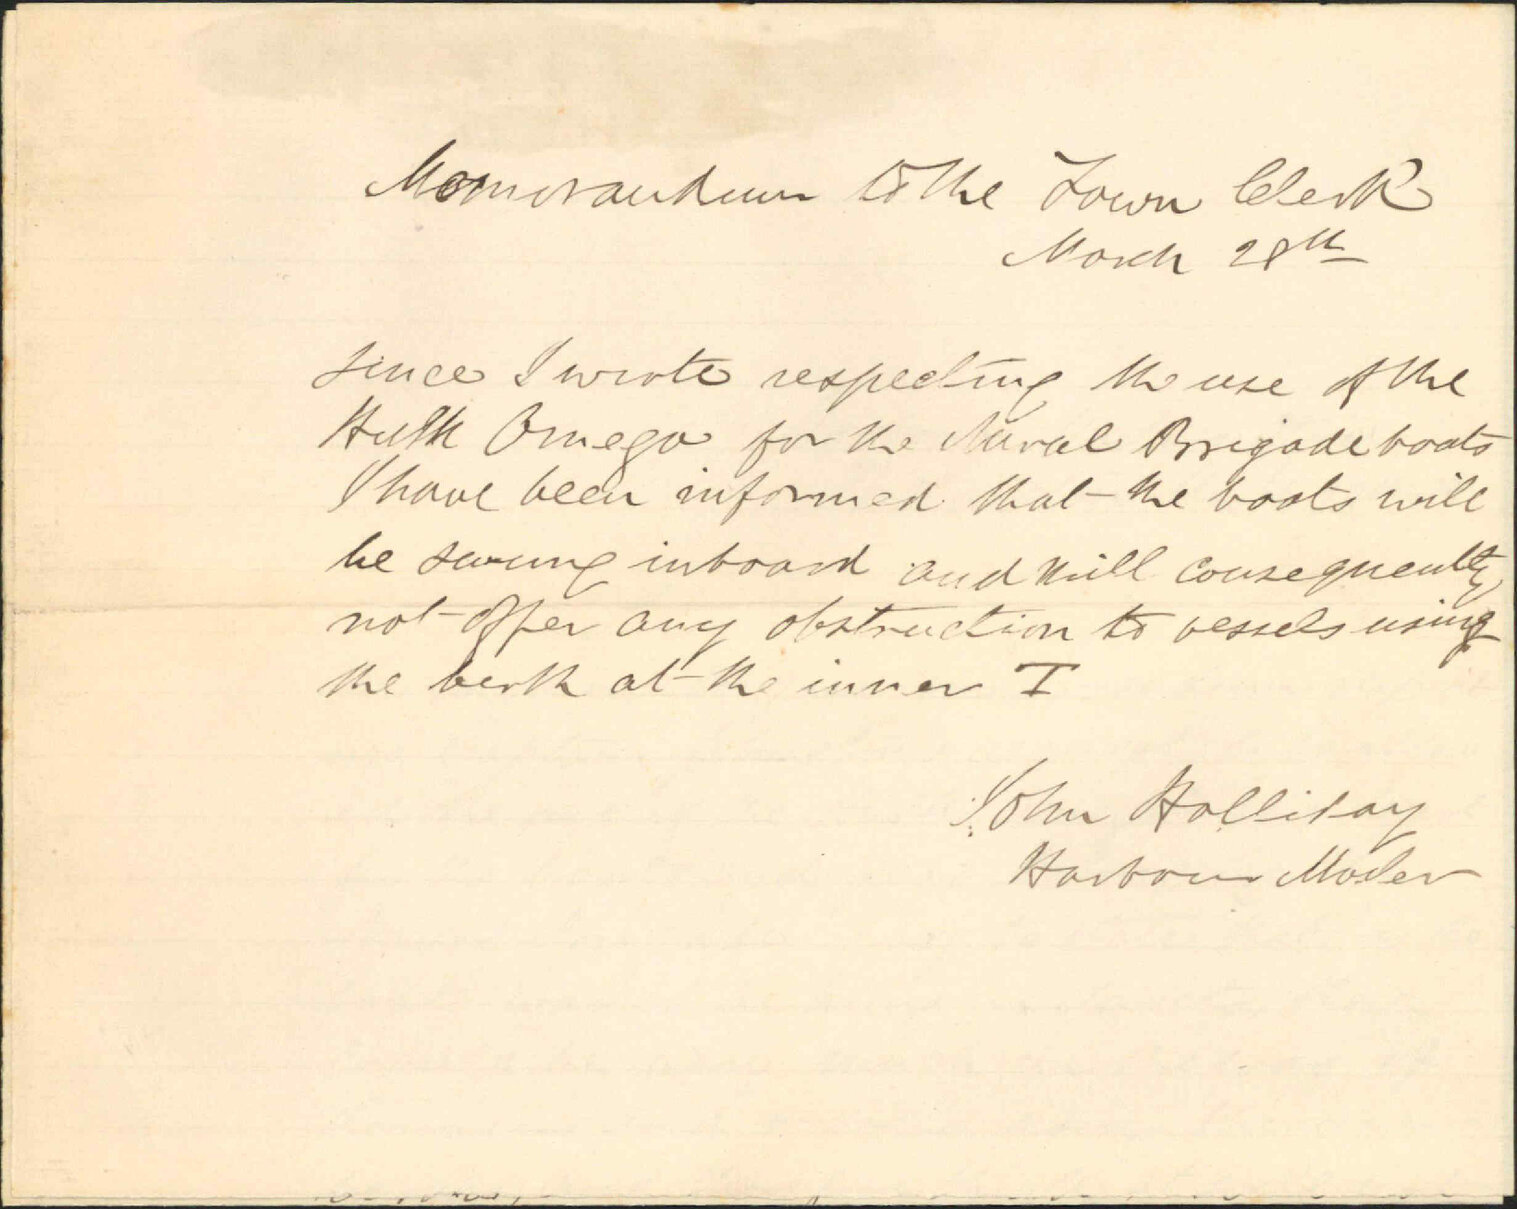 Memorandum to the Town Clerk
March 28th
Since I wrote respecting the use of the
Hulk Omega for the Naval Brigade boats
I have been informed that the boats will
be swung inboard and will consequently
not offer any obstruction to vessels using
the berth at the inner T
John Halliday
Harbour Master